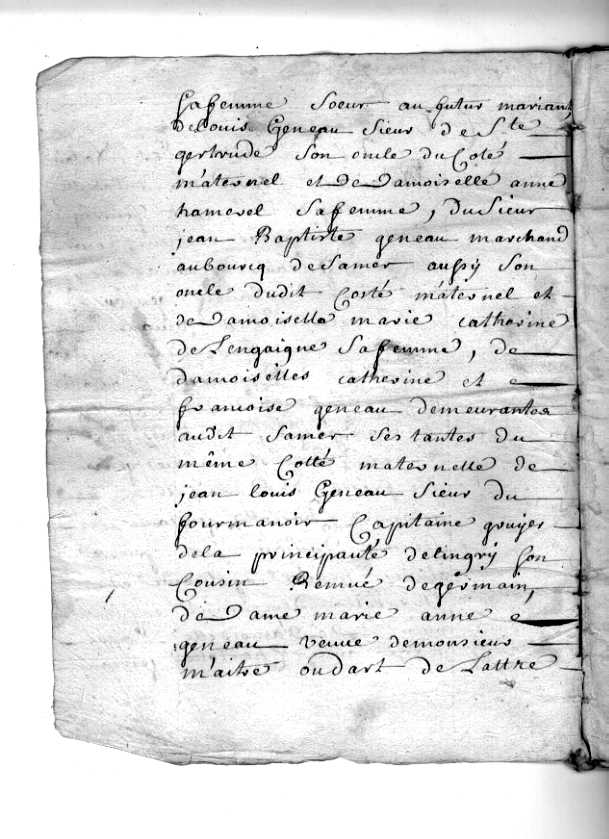 Safemme Soeur au futur mariant,
de Louis Geneau Sieur de Ste
gertrude Son oncle du Coté
maternel et de Damoiselle anne
hamerel Safemme, du Sieur
jean Baptiste geneau marchand
aubourcq de Samer aussy Son
oncle dudit Costé maternel et
de Damoiselle marie catherine
de Lengaigne Safemme, de
damoiselles catherine et
francoise geneau demeurantes
audit Samer Ses tantes du
même Cotté maternelle de
jean louis Geneau Sieur du
fourmanoir Capitaine gruyer
dela principauté delingry Son
Cousin Remué de germain,
de Dame marie anne
geneau veuve demonsieur
maitre oudart de Lattre